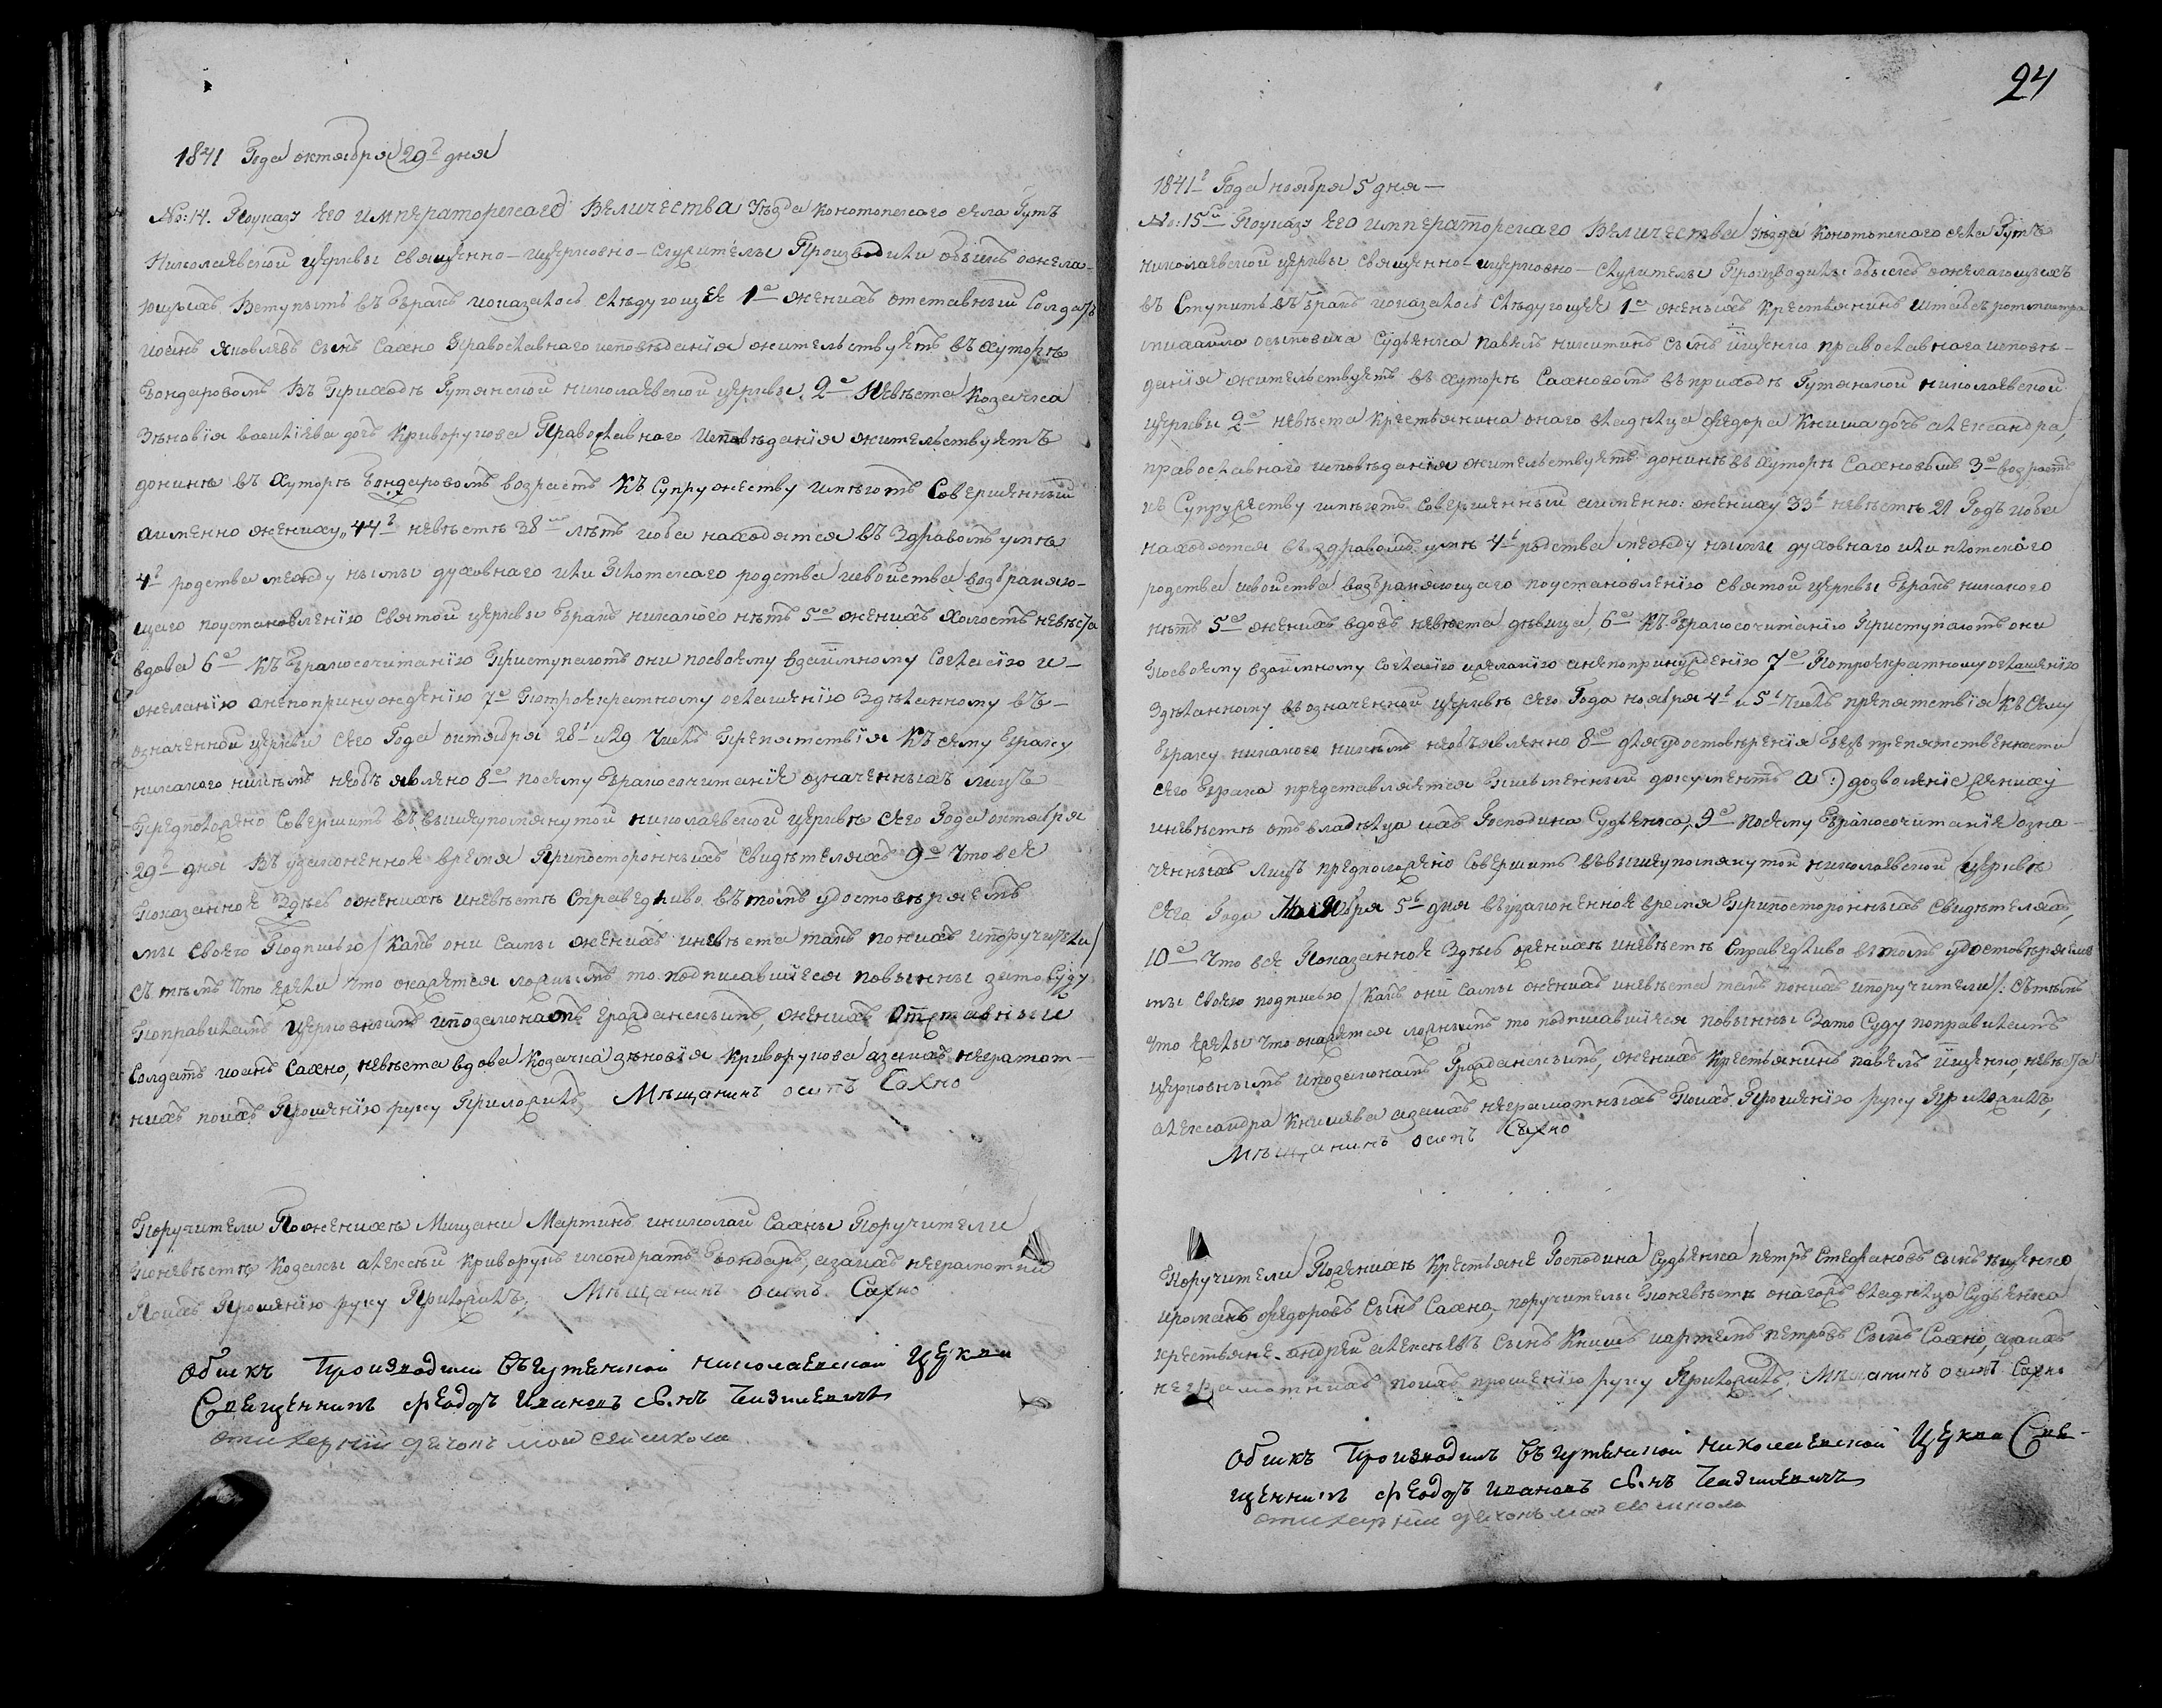 1841 Года октября 29г дня
No: 14. Поуказу Его Императорскаго Величества Уезда Конотопскаго села Гутъ
Николаевской церквы священно-ицерковно-служителы Производили обыскъ ожела-
ющыхъ Вступытъ въ Бракъ иоказалось слѣдующее 1е женихъ отставный Солдатъ
иоанъ яковлевъ сынъ Сахно Православнаго исповѣданія жительствуетъ въ хуторѣ
Бондаровомъ Въ Приходѣ Гутянской николаевской церквы. 2е Невѣста Козачка
Зѣновія василіева дочь Криворукова Православнаго Исповѣданія жительствуетъ
донинѣ въ Хуторѣ Бондаровомъ возрастъ Къ Супружеству имѣютъ Совершенный
аименно жениху 44г невѣстѣ 38м лѣтъ иоба находятся въ Здравомъ умѣ
4г родства между нымы духовнаго или Плотскаго родства исвойства возбраняю-
щаго поустановленію Святой церквы Бракъ никакого нѣтъ 5е женихъ Холостъ невѣста
вдова 6е Къ Бракосочитанію Приступаютъ они посвоему вдаимному Согласію и-
желанію анепопринужденію 7е Потроекратному оглашенію Здѣланному въ-
означенной церкви сего Года октября 28г и 29 Числъ Препятствія Къ сему Браку
никакого никѣмъ необъявлено 8е посему Бракосочитаніе означенныхъ лицъ
Предположено Совершить въ вышеупомянутой николаевской церквѣ сего Года октября
29г дня Въ узаконенное время Припосторонныхъ Свидѣтеляхъ 9е Что все
Показанное Здѣсь оженихѣ иневѣстѣ Справедливо въ томъ удостовѣряемъ
мы своею Подписью/Какъ они самы женихъ иневѣста такъ поныхъ ипоручители/
съ тѣмъ Что ежели Что окажется ложнымъ то подписавшіеся повынны зато Суду
Поправиламъ церковнымъ ипозаконамъ Гражданскимъ, женихъ Отставный
Солдатъ иоанъ Сахно, невѣста вдова Козачка зѣновія Криворукова азаихъ неграмот-
ныхъ поихъ Прошенію руку Приложилъ, Мѣщанинъ осипъ Сахно
Поручители Поженихѣ Мищани Мартинъ иниколай Сахны Поручители
Поневѣстѣ Козаки алексѣй Криворукъ икондратъ Бондаръ, азаихъ неграмотных
Поихъ Прошенію руку Приложилъ, Мѣщанинъ осипъ Сахно
Обискъ Производили Съгутенской николаевской Церкви
Свещенникъ Феодоръ Ивановъ С.нъ
24
1841г Года ноября 5 дня —
No: 15й Поуказу Его императторскаго Величества Уезда Конотопскаго села Гутъ
николаевской церквы священно-ицерковно-служителы Производилы обыскъ ожелающыхъ
въ Ступитъ въ Бракъ иоказалось слѣдующее 1е женыхъ Крестьянинъ Штабсъ ротмистра
михаила осиповича Судьенка павелъ никитинъ Сынъ ищенко православнаго исповѣ-
данія жительствуетъ въ хуторѣ Сахновомъ въ приходѣ Гутянской николаевской
церквы 2е невѣста Крестьянина онаго владѣлца федора Книша дочъ александра,
православнаго исповѣданія жительствуетъ донинѣ въ хуторѣ Сахновомъ 3е возрастъ
къ Супружеству имѣютъ Совершенный аименно: жениху 33г невѣстѣ 21 Годъ иоба
находятся въ здравомъ умѣ 4г родства между нымы духовнаго или плотскаго
родства исвойства возбраняющаго поустановленію Святой церквы Бракъ никакого
нѣтъ 5е женихъ вдовъ невѣста дѣвица, 6е Къ Бракосочитанію Приступаютъ они
Посвоему взаимному Согласію ижеланію анепопринужденію 7е Потроекратному оглашенію
Здѣланному въозначенной церквѣ сего Года ноября 4г и 5г Числъ препятствія Къ сему
Браку никакого никѣмъ необъявленно 8е для удостовѣренія Безпрепятственности
сего Брака представляется Письменный документъ а:) дозволеніе жениху
иневѣстѣ отъ владѣлца ихъ Господина Судьенка, 9е посему Бракосочитаніе озна-
ченныхъ лицъ предположено Совершить въвышеупомянутой николаевской церквѣ
сего Года Ноября 5г дня въузаконенное время Припосторонныхъ Свидѣтеляхъ,
10е Что все Показанное Здѣсь оженихѣ иневѣстѣ Справедливо въ томъ удостовѣряемъ
мы своею подписью/Какъ они самы женихъ иневѣста такъ поныхъ ипоручители/: Сътѣмъ
что ежели что окажется ложнымъ то подписавшіеся повынны Зато Суду поправиламъ
церковнымъ ипозаконамъ Гражданскимъ, женихъ Крестьянинъ павелъ ищенко, невѣста
александра Книшева азаихъ неграмотныхъ Поихъ Прошенію руку Приложилъ,
Мѣщанинъ осипъ Сахно
Поручители Поженихѣ Крестьяне Господина Судьенка петръ Стефановъ сынъ ищенко
ироманъ федоровъ Сынъ Сахно, поручителы Поневѣстѣ онагожъ владѣлца Судьенка
крестьяне андрей алексѣевъ Сынъ Книшъ иартемъ петровъ Сынъ Сахно, азаихъ
неграмотныхъ поихъ прошенію руку Приложилъ, Мѣщанинъ осипъ Сахно
Обискъ Производилъ Съгутенской николаевской Церкви Све-
щенникъ Феодоръ Ивановъ С.нъ